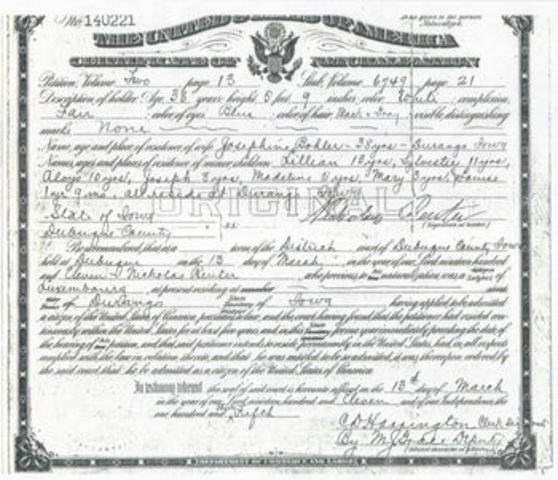 No. 140221
To be given to the person Naturalized.
THE UNITED STATES OF AMERICA
CERTIFICATE OF NATURALIZATION
Petition, Volume Two page 13 Stub, Volume 6749 page 21
Description of holder: Age, 38 years; height, 5 feet, 9 inches; color, White; complexion,
Fair; color of eyes, Blue; color of hair, Black & Gray; visible distinguishing
marks, None
Name, age and place of residence of wife Josephine Bohler - 38 yrs - Durango Iowa
Names, ages and places of residence of minor children Lillian 13 yrs, Sylvester 11 yrs,
10 yrs, Joseph 8 yrs, Madeline 5 yrs, Mary 3 yrs, Louise
1 yr 9 mo, all reside at Durango Iowa
ORIGINAL
State of Iowa
Dubuque County ss:
Nicholas Reuter
(Signature of holder)
Be it remembered, that at a term of the District court of Dubuque County Iowa
held at Dubuque on the 13 day of March in the year of our Lord nineteen hundred
and Eleven Nicholas Reuter who previous to his naturalization was a subject of
Luxembourg at present residing at number street
of Durango of Iowa having applied to be admitted
a citizen of the United States of America pursuant to law, and the court having found that the petitioner had resided con-
tinuously within the United States for at least five years and in this for one year immediately preceding the date of
the hearing of his petition, and that said petitioner intends to reside permanently in the United States, had in all respects
complied with the law in relation thereto, and that he was entitled to be so admitted, it was thereupon ordered by
the said court that he be admitted as a citizen of the United States of America.
In testimony whereof the seal of said court is hereunto affixed on the 13th day of March
in the year of our Lord nineteen hundred and Eleven and of our Independence the
one hundred and thirty fifth
C D Harrington Clerk
By M J Deputy
DEPARTMENT OF COMMERCE AND LABOR